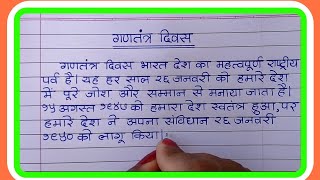 गणतंत्र दिवस
गणतंत्र दिवस भारत देश का महत्वपूर्ण राष्ट्रीय
पर्व है। यह हर साल २६ जनवरी को हमारे देश
में पूरे जोश और सम्मान से मनाया जाता है।
१५ अगस्त १९४७ को हमारा देश स्वतंत्र हुआ, पर
हमारे देश ने अपना संविधान २६ जनवरी
१९५० को लागू किया।